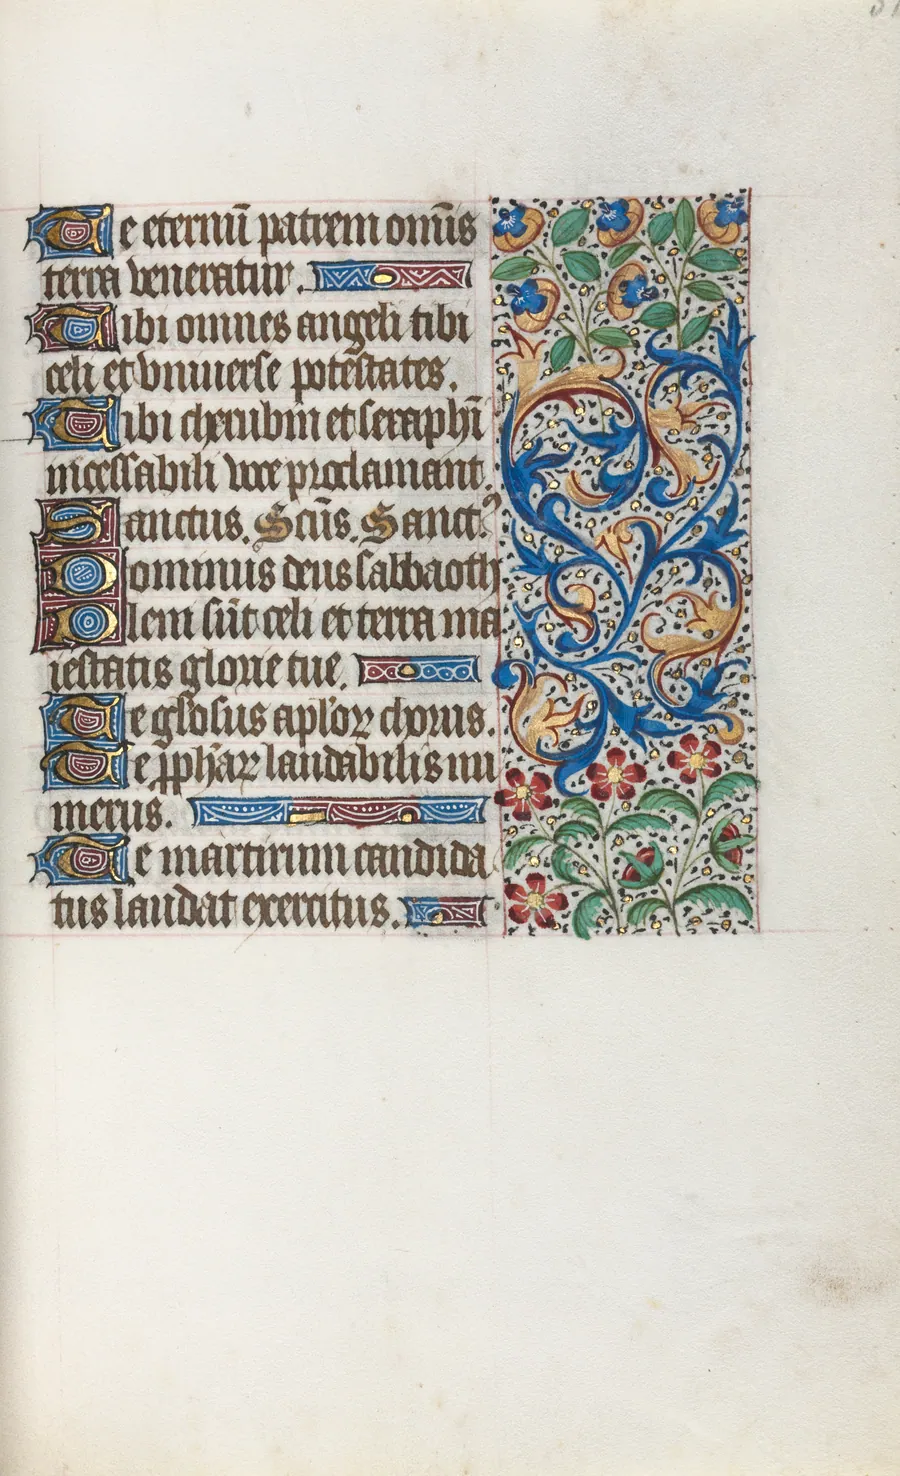 Te eternū patrem omīs
terra veneratur.
Tibi omnes angeli tibi
celi et vniuerse potestates.
Tibi cherubin et seraphī
incessabili voce proclamant.
Sanctus. Scūs. Sanctꝰ.
Dominus deus sabbaoth
Pleni sūt celi et terra ma
iestatis glorie tue.
Te glōsus aplōꝝ chorus.
Te ꝓphãꝝ laudabilis nu
merus.
Te martirum candida
tus laudat exercitus.